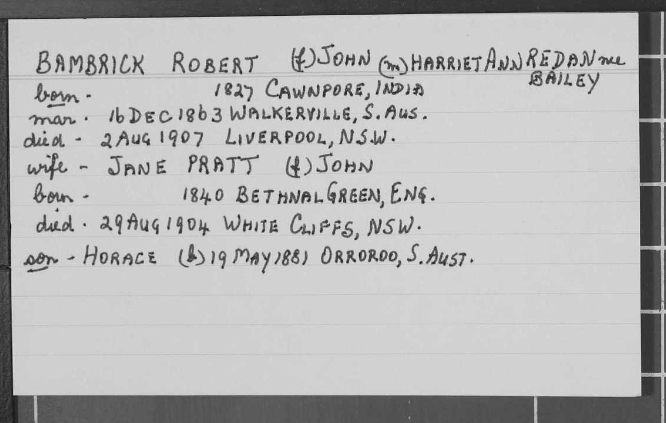 BAMBRICK ROBERT (f) JOHN (m) HARRIET ANN REDAN nee
BAILEY
born - 1827 CAWNPORE, INDIA
mar. 16 DEC 1863 WALKERVILLE, S. AUS.
died - 2 AUG 1907 LIVERPOOL, N.S.W.
wife - JANE PRATT (f) JOHN
born - 1840 BETHNAL GREEN, ENG.
died. 29 AUG 1904 WHITE CLIFFS, NSW.
son - HORACE (b) 19 MAY 1881 ORROROO, S. AUST.